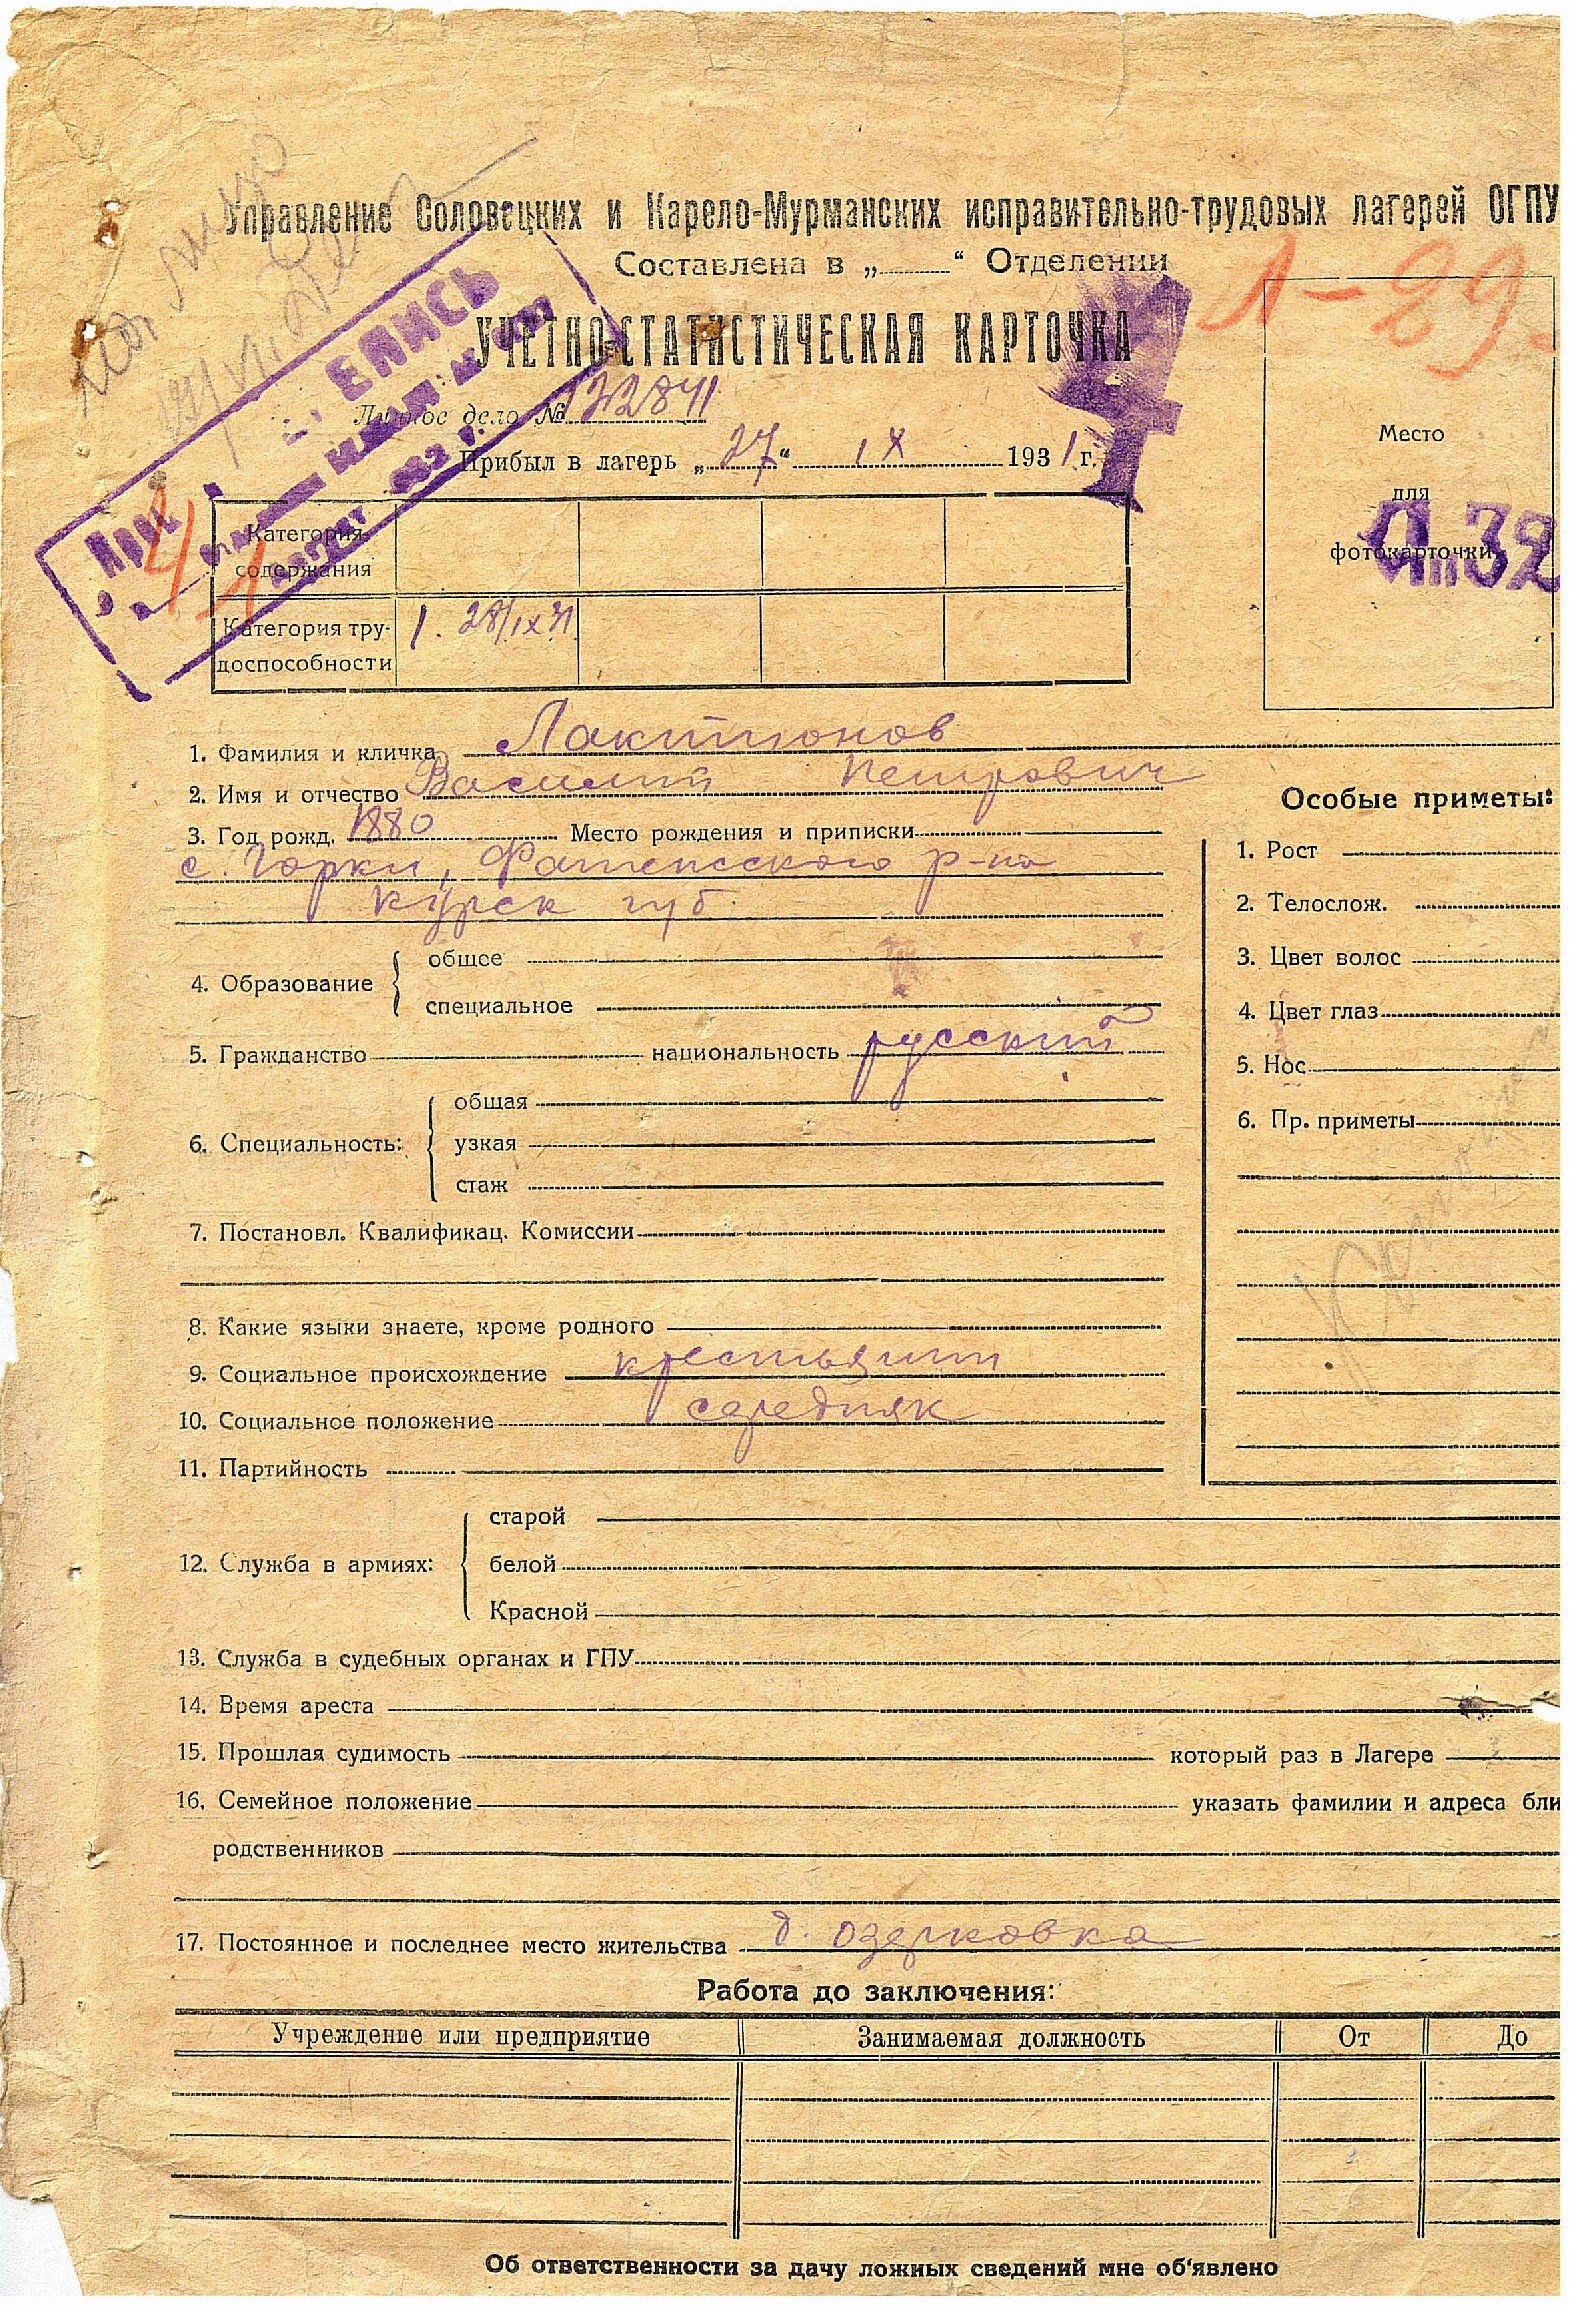 Управление Соловецких и Карело-Мурманских исправительно-трудовых лагерей ОГПУ
Составлена в „ “ Отделении
УЧЕТНО-СТАТИСТИЧЕСКАЯ КАРТОЧКА
1-29-
Личное дело № 132841
Прибыл в лагерь „27“ IX 1931 г.
Место
для
фотокарточки
32
Категория содержания
Категория трудоспособности
1. 28/IX 31
1. Фамилия и кличка Лактионов
2. Имя и отчество Василий Петрович
3. Год рожд. 1880 Место рождения и приписки
с. Горки, Фатежского р-на
Курск губ.
4. Образование
общее
специальное
5. Гражданство национальность русский
6. Специальность:
общая
узкая
стаж
7. Постановл. Квалификац. Комиссии
8. Какие языки знаете, кроме родного
9. Социальное происхождение крестьянин
10. Социальное положение середняк
11. Партийность
Особые приметы:
1. Рост
2. Телослож.
3. Цвет волос
4. Цвет глаз
5. Нос
6. Пр. приметы
12. Служба в армиях:
старой
белой
Красной
13. Служба в судебных органах и ГПУ
14. Время ареста
15. Прошлая судимость который раз в Лагере
16. Семейное положение указать фамилии и адреса бли
родственников
17. Постоянное и последнее место жительства д. Озерковка
Работа до заключения:
Учреждение или предприятие Занимаемая должность От До
Об ответственности за дачу ложных сведений мне об'явлено